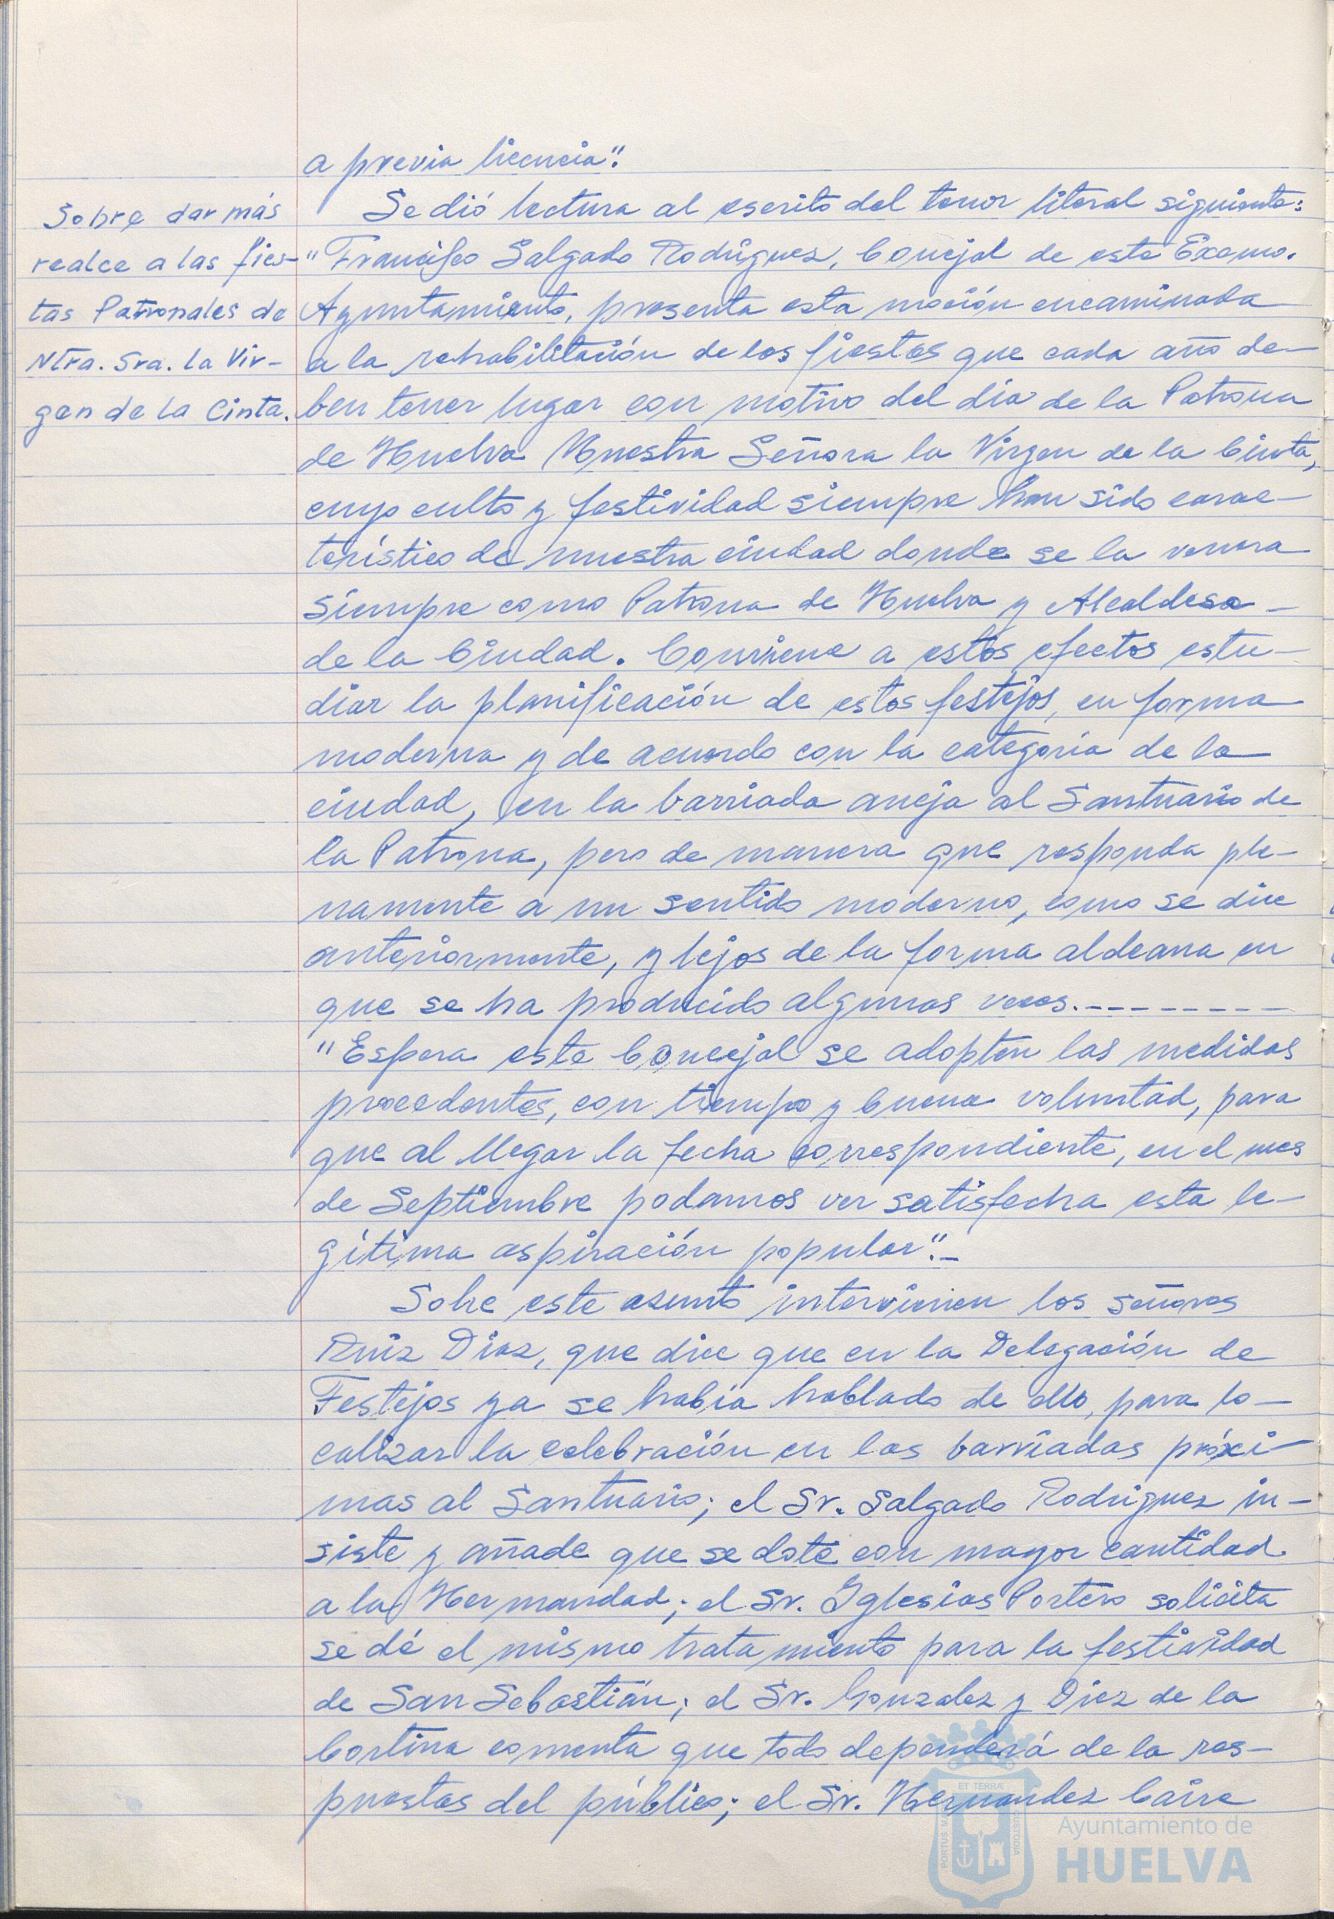 a previa licencia".
Sobre dar más
realce a las fies-
tas Patronales de
Ntra. Sra. La Vir-
gen de la Cinta.
Se dió lectura al escrito del tenor literal siguiente:
"Francisco Salgado Rodríguez, Concejal de este Excmo.
Ayuntamiento, presenta esta moción encaminada
a la rehabilitación de las fiestas que cada año de-
ben tener lugar con motivo del día de la Patrona
de Huelva Nuestra Señora la Virgen de la Cinta,
cuyo culto y festividad siempre han sido carac-
terístico de nuestra ciudad donde se la venera
siempre como Patrona de Huelva y Alcaldesa
de la Ciudad. Conviene a estos efectos estu-
diar la planificación de estos festejos, en forma
moderna y de acuerdo con la categoría de la
ciudad, en la barriada aneja al Santuario de
la Patrona, pero de manera que responda ple-
namente a un sentido moderno, como se dice
anteriormente, y lejos de la forma aldeana en
que se ha producido algunas veces.---------
"Espera este Concejal se adopten las medidas
procedentes, con tiempo y buena voluntad, para
que al llegar la fecha correspondiente, en el mes
de Septiembre podamos ver satisfecha esta le-
gítima aspiración popular".-
Sobre este asunto intervienen los señores
Ruiz Díaz, que dice que en la Delegación de
Festejos ya se había hablado de ello, para lo-
calizar la celebración en las barriadas próxi-
mas al Santuario; el Sr. Salgado Rodríguez in-
siste y añade que se dote con mayor cantidad
a la Hermandad; el Sr. Iglesias Portero solicita
se dé el mismo tratamiento para la festividad
de San Sebastián; el Sr. Gonzalez y Díez de la
Cortina comenta que todo dependerá de la res-
puestas del público; el Sr. Hernandez Caire
ET TERRÆ
PORTUS MARIS
CUSTODIA
Ayuntamiento de
HUELVA